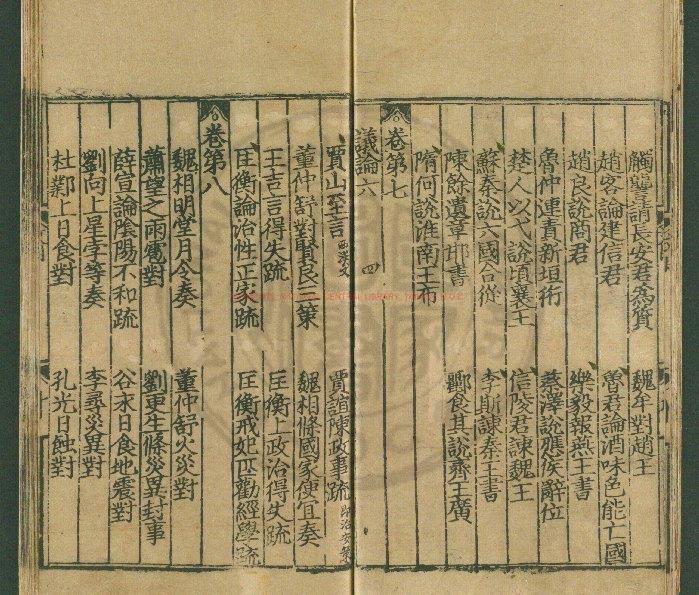 觸讋請長安君為質　魏牟對趙王
趙客論建信君　魯君論酒味色能亡國
趙良說商君　樂毅報燕王書
魯仲連責新垣衍　蔡澤說應侯辭位
楚人以弋說頃襄王　信陵君諫魏王
蘇秦說六國合從　李斯諫秦王書
陳餘遺章邯書　酈食其說齊王廣
隋何說淮南王布
卷第七
議論六　四
賈山至言　西漢文　賈誼陳政事疏　即治安策
董仲舒對賢良三策　魏相條國家便宜奏
王吉言得失疏　匡衡上政治得失疏
匡衡論治性正家疏　匡衡戒妃匹勸經學疏
卷第八
魏相明堂月令奏　董仲舒火災對
蕭望之雨雹對　劉更生條災異封事
薛宣論陰陽不和疏　谷永日食地震對
劉向上星孛等奏　李尋災異對
杜鄴上日食對　孔光日蝕對